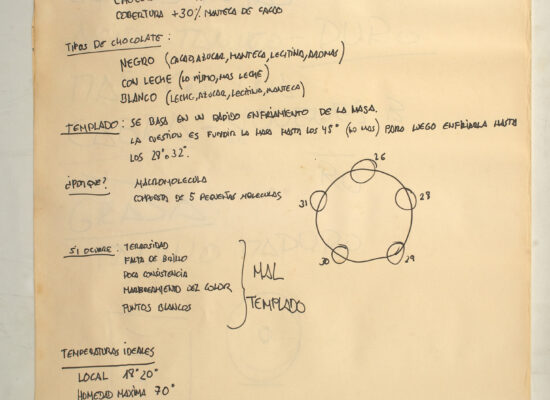 COBERTURA +30% MANTECA DE CACAO
TIPOS DE CHOCOLATE :
NEGRO (CACAO, AZUCAR, MANTECA, LECITINA, AROMAS)
CON LECHE (LO MISMO, MAS LECHE)
BLANCO (LECHE, AZUCAR, LECITINA, MANTECA)
TEMPLADO : SE BASA EN UN RÁPIDO ENFRIAMIENTO DE LA MASA.
LA CUESTION ES FUNDIR LA MASA HASTA LOS 45° (LO MAS) PARA LUEGO ENFRIARLA HASTA
LOS 28° o 32°.
¿POR QUE? MACROMOLECULA
COMPUESTA DE 5 PEQUEÑAS MOLECULAS
26
28
29
30
31
SI OCURRE : TERROSIDAD
FALTA DE BRILLO
POCA CONSISTENCIA
DEL COLOR
PUNTOS BLANCOS
MAL
TEMPLADO
TEMPERATURAS IDEALES
LOCAL 18° 20°
HUMEDAD MAXIMA 70°